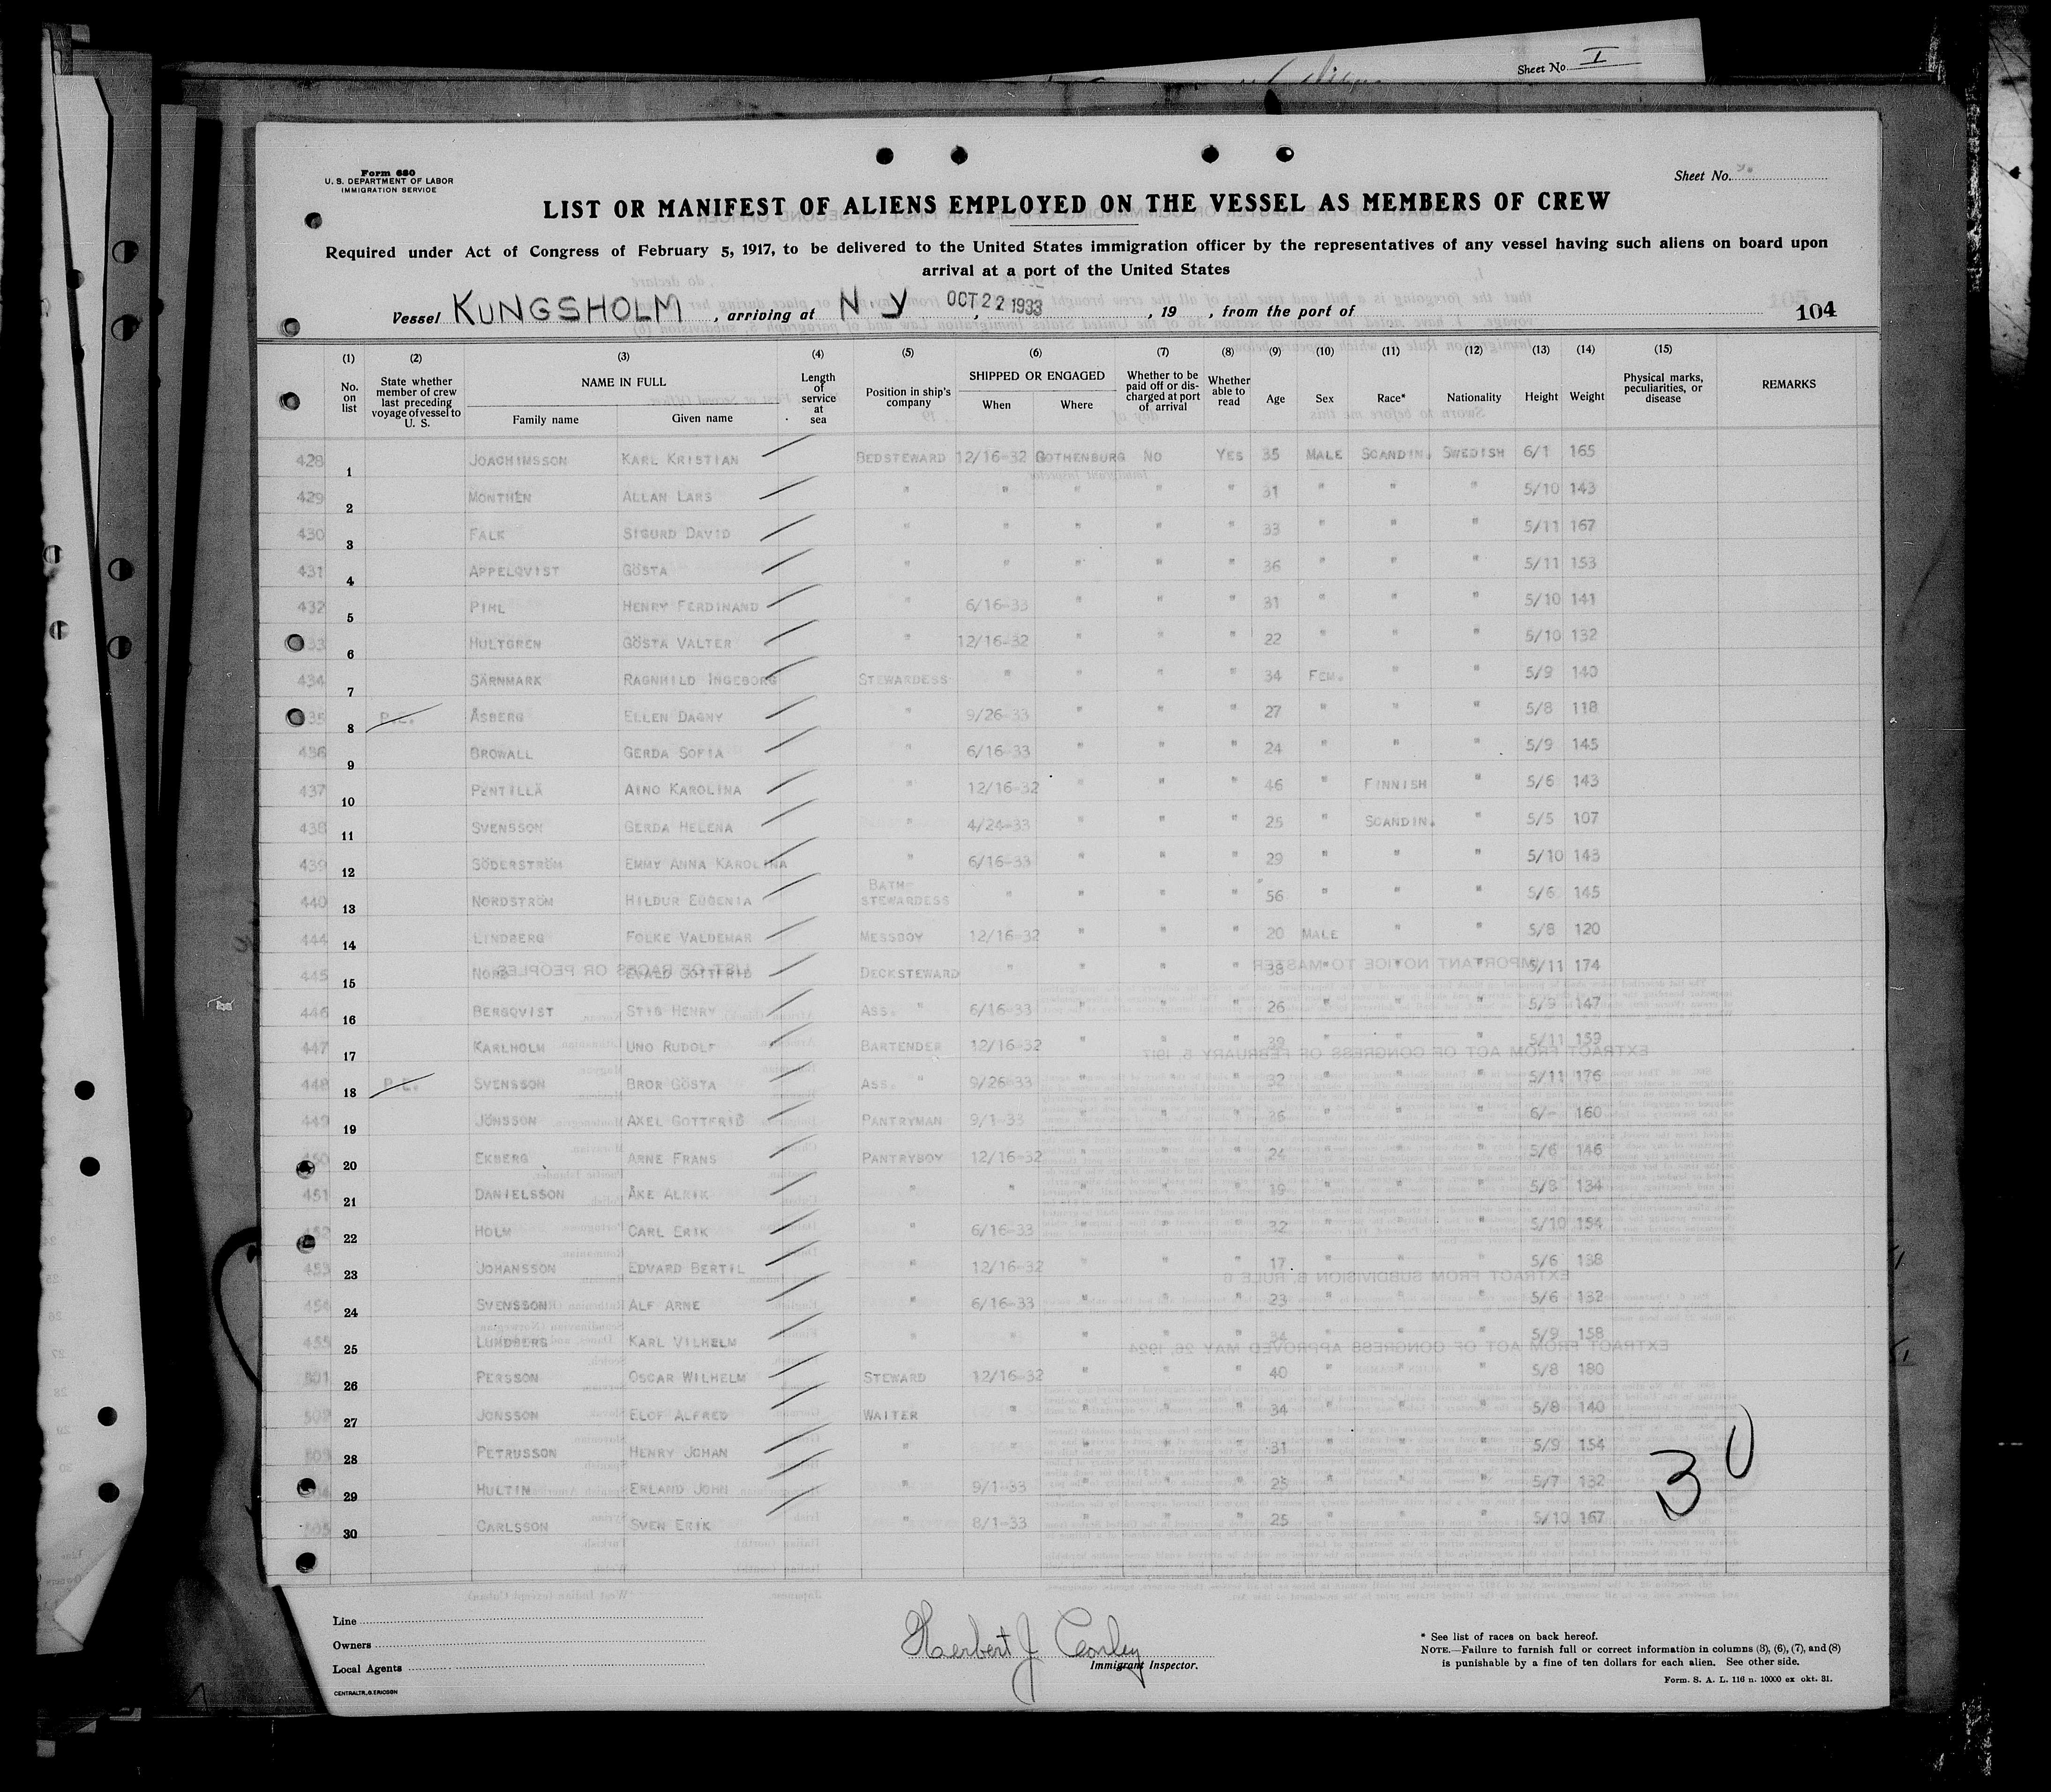 Sheet No. I
Form 680
U. S. DEPARTMENT OF LABOR
IMMIGRATION SERVICE
Sheet No.
LIST OR MANIFEST OF ALIENS EMPLOYED ON THE VESSEL AS MEMBERS OF CREW
Required under Act of Congress of February 5, 1917, to be delivered to the United States immigration officer by the representatives of any vessel having such aliens on board upon
arrival at a port of the United States
Vessel KUNGSHOLM, arriving at N.Y, OCT 22 1933, 19 , from the port of 104
(1) (2) (3) (4) (5) (6) (7) (8) (9) (10) (11) (12) (13) (14) (15)
No. on list State whether member of crew last preceding voyage of vessel to U. S. NAME IN FULL Family name Given name Length of service at sea Position in ship's company SHIPPED OR ENGAGED When Where Whether to be paid off or discharged at port of arrival Whether able to read Age Sex Race* Nationality Height Weight Physical marks, peculiarities, or disease REMARKS
428 1 JOACHIMSSON KARL KRISTIAN BEDSTEWARD 12/16-32 GOTHENBURG NO YES 35 MALE SCANDIN. SWEDISH 6/1 165
429 2 MONTHÉN ALLAN LARS " " " " " 31 " " " 5/10 143
430 3 FALK SIGURD DAVID " " " " " 33 " " " 5/11 167
431 4 APPELQVIST GÖSTA " " " " " 36 " " " 5/11 153
432 5 PIHL HENRY FERDINAND " 6/16-33 " " " 31 " " " 5/10 141
33 6 HULTGREN GÖSTA VALTER " 12/16-32 " " " 22 " " " 5/10 132
434 7 SÄRNMARK RAGNHILD INGEBORG STEWARDESS " " " " 34 FEM. " " 5/9 140
35 8 P.E. ÅSBERG ELLEN DAGNY " 9/26-33 " " " 27 " " " 5/8 118
436 9 BROWALL GERDA SOFIA " 6/16-33 " " " 24 " " " 5/9 145
437 10 PENTILLÄ AINO KAROLINA " 12/16-32 " " " 46 " FINNISH " 5/6 143
438 11 SVENSSON GERDA HELENA " 4/24-33 " " " 25 " SCANDIN. " 5/5 107
439 12 SÖDERSTRÖM EMMY ANNA KAROLINA " 6/16-33 " " " 29 " " " 5/10 143
440 13 NORDSTRÖM HILDUR EUGENIA BATH STEWARDESS " " " " 56 " " " 5/6 145
444 14 LINDBERG FOLKE VALDEMAR MESSBOY 12/16-32 " " " 20 MALE " " 5/8 120
445 15 NORD EVALD GOTTFRID DECKSTEWARD " " " " 38 " " " 5/11 174
446 16 BERGQVIST STIG HENRY ASS. " 6/16-33 " " " 26 " " " 5/9 147
447 17 KARLHOLM UNO RUDOLF BARTENDER 12/16-32 " " " 39 " " " 5/11 159
448 18 P.E. SVENSSON BROR GÖSTA ASS. " 9/26-33 " " " 32 " " " 5/11 176
449 19 JÖNSSON AXEL GOTTFRID PANTRYMAN 9/1-33 " " " 36 " " " 6/- 160
450 20 EKBERG ARNE FRANS PANTRYBOY 12/16-32 " " " 24 " " " 5/6 146
451 21 DANIELSSON ÅKE ALRIK " " " " " 19 " " " 5/8 134
452 22 HOLM CARL ERIK " 6/16-33 " " " 22 " " " 5/10 154
453 23 JOHANSSON EDVARD BERTIL " 12/16-32 " " " 17 " " " 5/6 138
454 24 SVENSSON ALF ARNE " 6/16-33 " " " 23 " " " 5/6 132
455 25 LUNDBERG KARL VILHELM " " " " " 34 " " " 5/9 158
501 26 PERSSON OSCAR WILHELM STEWARD 12/16-32 " " " 40 " " " 5/8 180
502 27 JONSSON ELOF ALFRED WAITER " " " " 34 " " " 5/8 140
503 28 PETRUSSON HENRY JOHAN " " " " " 31 " " " 5/9 154
29 HULTIN ERLAND JOHN " 9/1-33 " " " 25 " " " 5/7 132
505 30 CARLSSON SVEN ERIK " 8/1-33 " " " 25 " " " 5/10 167
30
Line
Owners
Local Agents
CENTRALTR., G. ERICSON
Herbert J.
Immigrant Inspector.
* See list of races on back hereof.
NOTE.—Failure to furnish full or correct information in columns (3), (6), (7), and (8)
is punishable by a fine of ten dollars for each alien. See other side.
Form. S. A. L. 116 n. 10000 ex okt. 31.